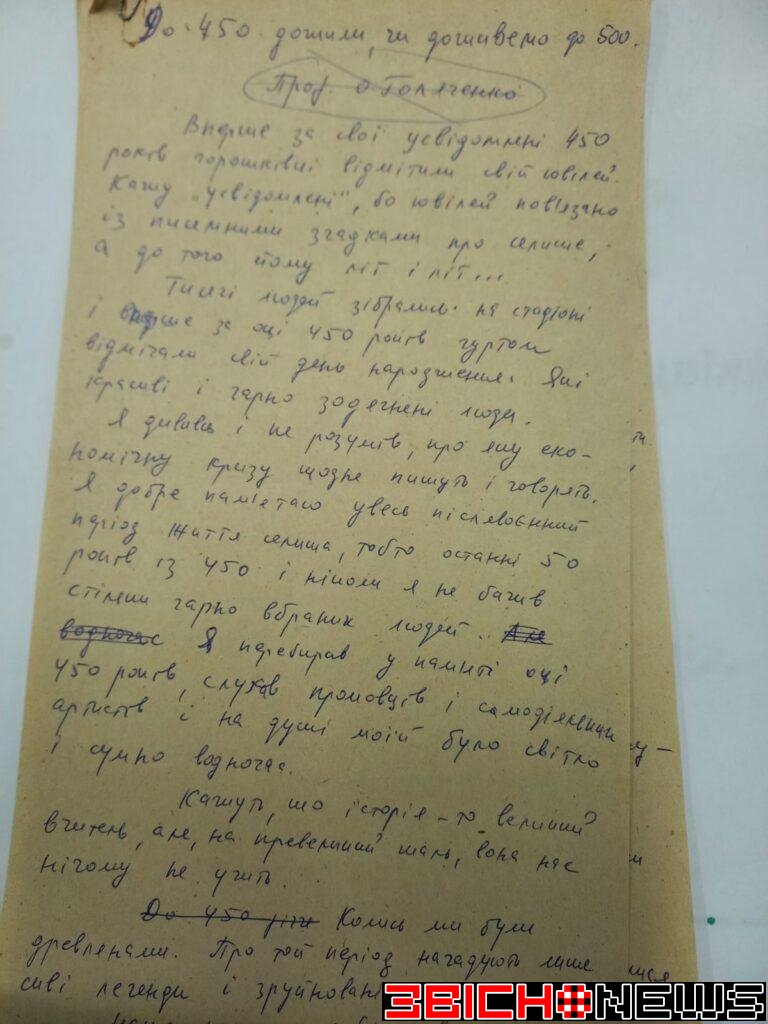 До 450 дожили, чи доживемо до 500.
Проф. О Голяченко
Вперше за свої усвідомлені 450
років горошківці відмітили свій ювілей.
Кажу „усвідомлені", бо ювілей пов'язано
із писемними згадками про селище,
а до того йому літ і літ...
Тисячі людей зібрались на стадіоні
і вперше за оці 450 років гуртом
відмічали свій день народження. Які
красиві і гарно зодягнені люди.
Я дививсь і не розумів, про яку еко-
номічну кризу щодне пишуть і говорять.
Я добре пам'ятаю увесь післявоєнний
період життя селища, тобто останні 50
років із 450 і ніколи я не бачив
стільки гарно вбраних людей.. Але
водночас Я перебирав у памяті оці
450 років, слухав промовців і самодіяльних
артистів і на душі моїй було світло
і сумно водночас.
Кажуть, що історія – то великий
вчитель, але, на превеликий жаль, вона нас
нічому не учить.
До 450 річч Колись ми були
древлянами. Про той період нагадують лише
сиві легенди і зруйновані
3BICHONEWS